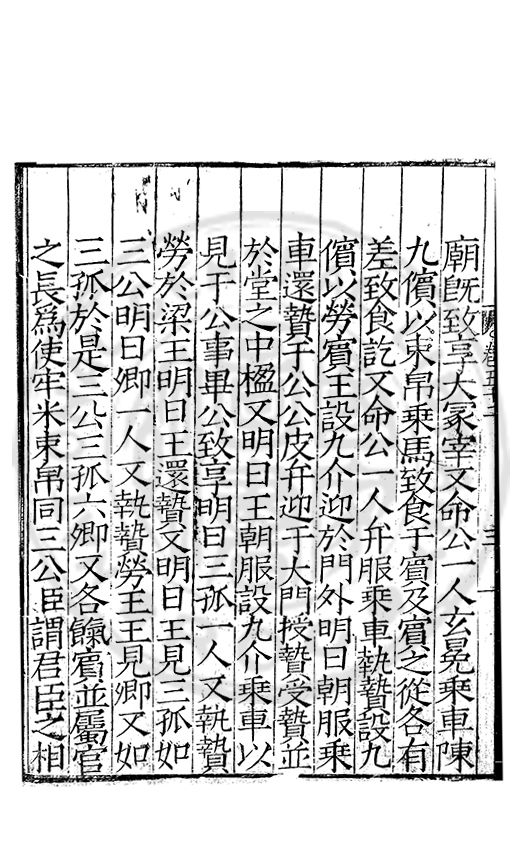 廟既致享大冢宰又命公一人玄冕乘車陳
九儐以束帛乘馬致食于賓及賓之從各有
差致食訖又命公一人弁服乘車執贄設九
儐以勞賓王設九介迎於門外明日朝服乘
車還贄于公公皮弁迎于大門授贄受贄並
於堂之中楹又明日王朝服設九介乘車以
見于公事畢公致享明日三孤一人又執贄
勞於梁王明日王還贄又明日王見三孤如
三公明日卿一人又執贄勞王王見卿又如
三孤於是三公三孤六卿又各餼賓並屬官
之長爲使牢米束帛同三公臣謂君臣之相